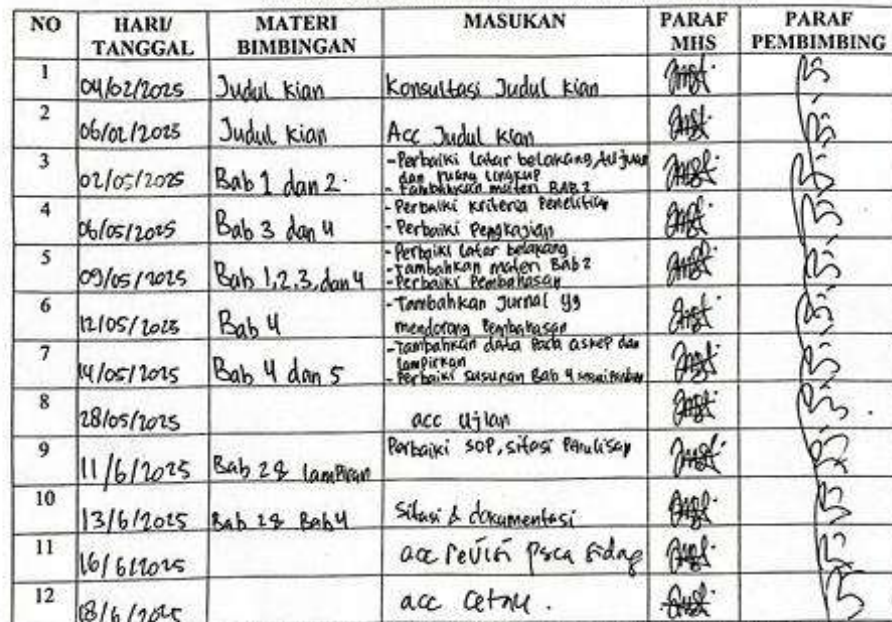 NO HARI/ TANGGAL MATERI BIMBINGAN MASUKAN PARAF MHS PARAF PEMBIMBING
1 04/02/2025 Judul Kian Konsultasi Judul Kian
2 06/02/2025 Judul Kian Acc Judul Kian
3 02/05/2025 Bab 1 dan 2. -Perbaiki latar belakang, tujuan
dan ruang lingkup
- Tambahkan materi BAB 2
4 06/05/2025 Bab 3 dan 4 - Perbaiki kriteria Penelitian
- Perbaiki Pengkajian
5 09/05/2025 Bab 1,2,3, dan 4 - Perbaiki latar belakang
- Tambahkan materi Bab 2
- Perbaiki Pembahasan
6 12/05/2025 Bab 4 - Tambahkan Jurnal yg
mendorong Pembahasan
7 14/05/2025 Bab 4 dan 5 - Tambahkan data pada askep dan
lampirkan
- Perbaiki susunan Bab 4
8 28/05/2025 acc Ujian
9 11/6/2025 Bab 2 & lampiran Perbaiki SOP, sitasi Penulisan
10 13/6/2025 Bab 2 & Bab 4 Sitasi & dokumentasi
11 16/6/2025 acc revisi psca sidag
12 18/6/2025 acc cetak.